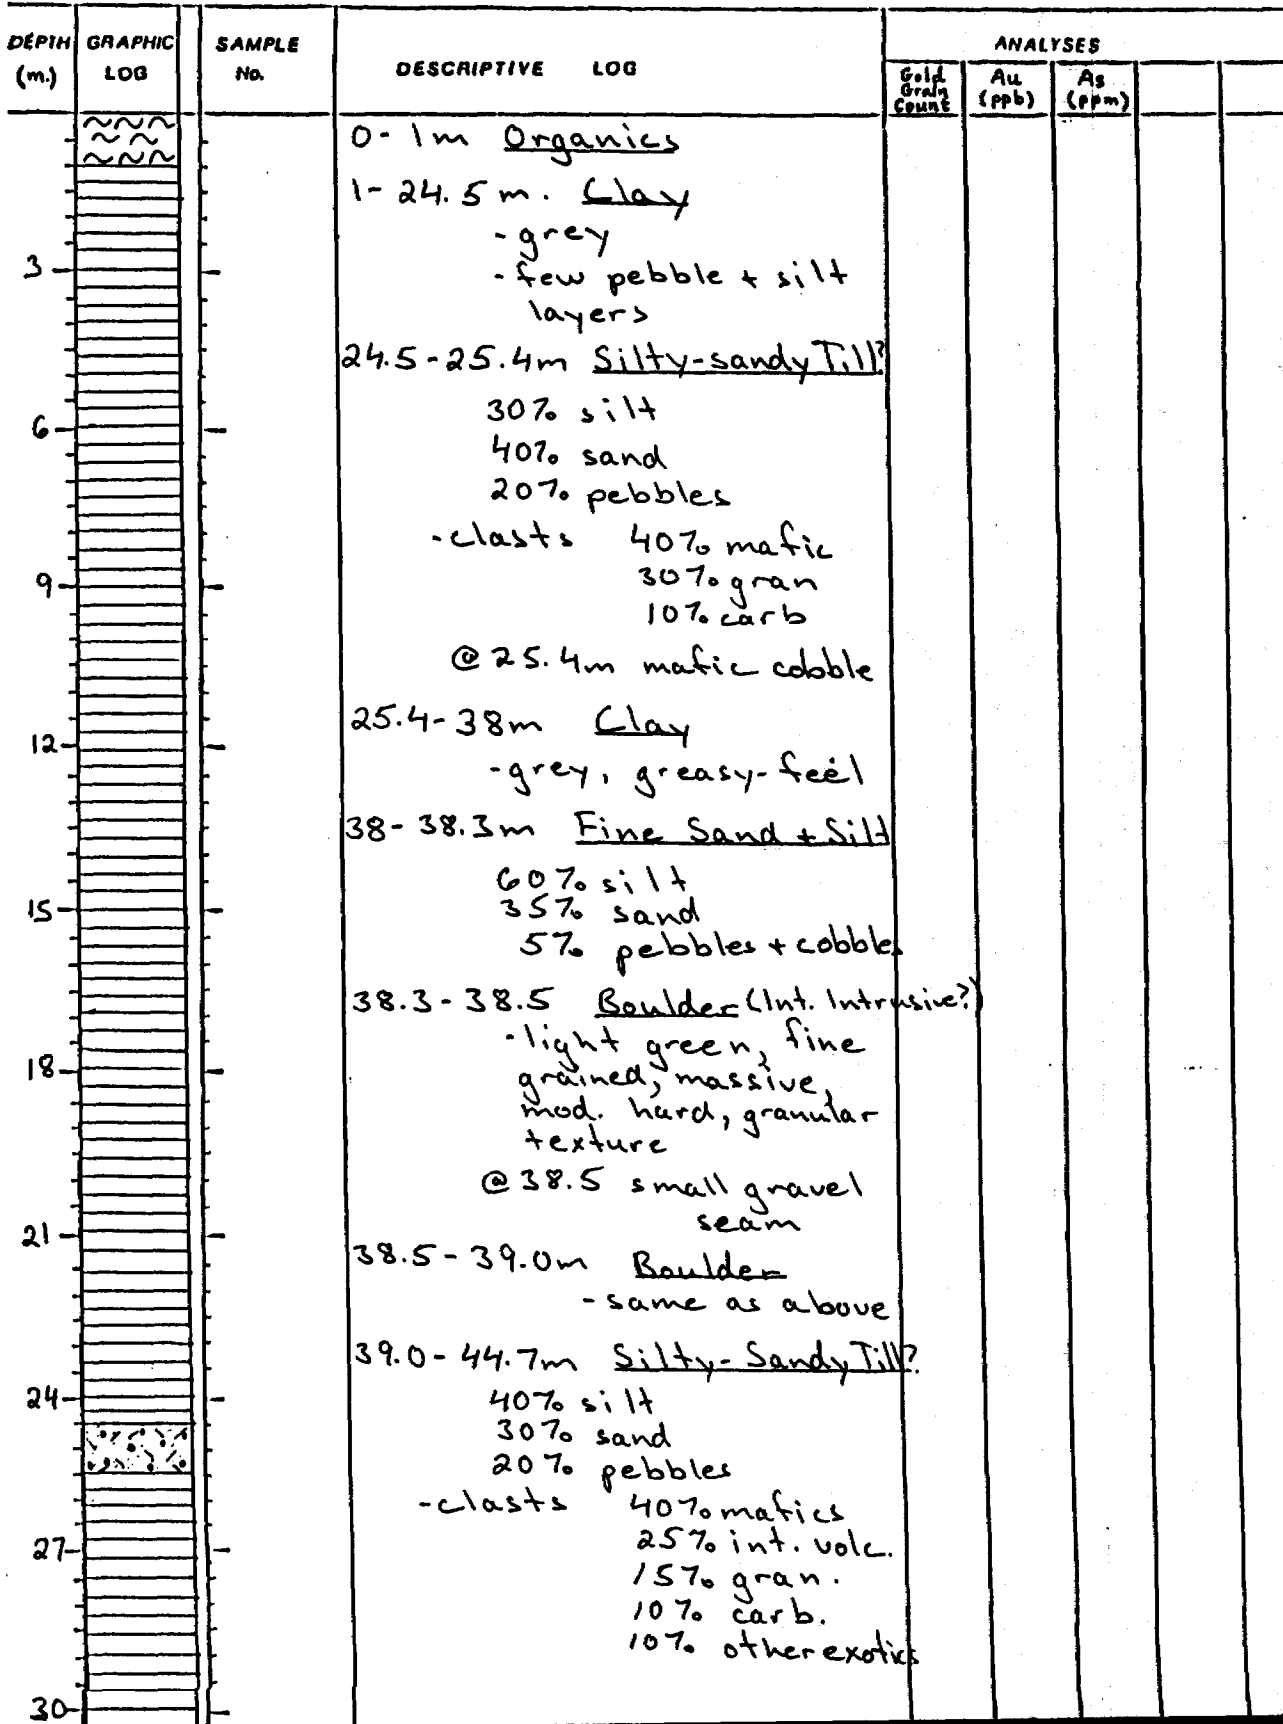 DEPTH (m.)
GRAPHIC LOG
SAMPLE No.
DESCRIPTIVE LOG
ANALYSES
Gold Grain Count
Au (ppb)
As (ppm)
0-1m Organics
1-24.5m. Clay
- grey
- few pebble + silt
layers
24.5-25.4m Silty-sandy Till?
30% silt
40% sand
20% pebbles
-clasts 40% mafic
30% gran
10% carb
@ 25.4m mafic cobble
25.4-38m Clay
-grey, greasy-feel
38-38.3m Fine Sand + Silt
60% silt
35% sand
5% pebbles + cobbles
38.3-38.5 Boulder (Int. Intrusive?)
-light green, fine
grained, massive,
mod. hard, granular
texture
@ 38.5 small gravel
seam
38.5-39.0m Boulder
- same as above
39.0-44.7m Silty-Sandy Till?
40% silt
30% sand
20% pebbles
-clasts 40% mafics
25% int. volc.
15% gran.
10% carb.
10% other exotics
3
6
9
12
15
18
21
24
27
30